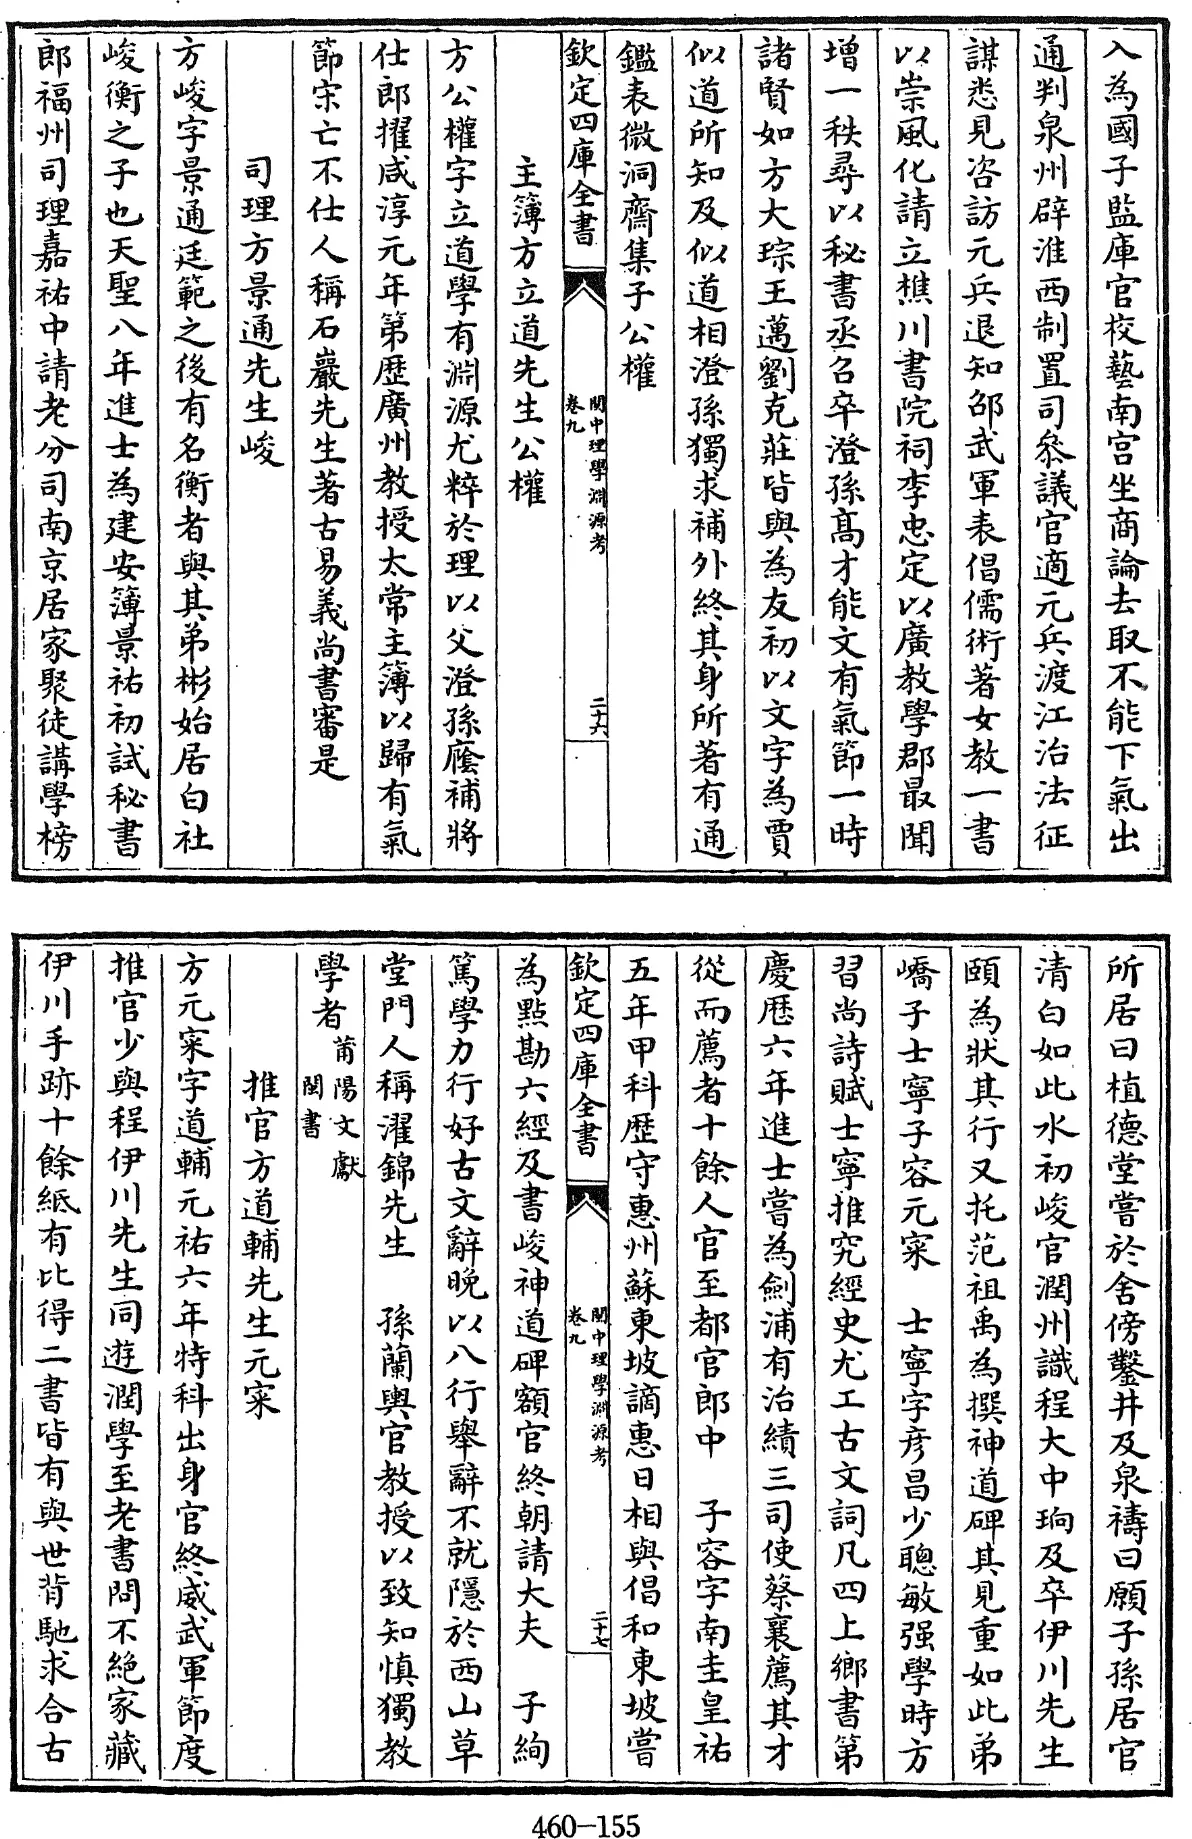 入為國子監庫官校藝南宫坐商論去取不能下氣出
通判泉州辟淮西制置司叅議官適元兵渡江治法征
謀悉見咨訪元兵退知邵武軍表倡儒術著女教一書
以崇風化請立樵川書院祠李忠定以廣教學郡最聞
增一秩尋以秘書丞召卒澄孫髙才能文有氣節一時
諸賢如方大琮王邁劉克莊皆與為友初以文字為賈
似道所知及似道相澄孫獨求補外終其身所著有通
鑑表微洞齋集子公權
欽定四庫全書
閩中理學淵源考
卷九
二十六
主簿方立道先生公權
方公權字立道學有淵源尤粹於理以父澄孫廕補將
仕郎擢咸淳元年第歴廣州教授太常主簿以歸有氣
節宋亡不仕人稱石巖先生著古易義尚書審是
司理方景通先生峻
方峻字景通廷範之後有名衡者與其弟彬始居白社
峻衡之子也天聖八年進士為建安簿景祐初試秘書
郎福州司理嘉祐中請老分司南京居家聚徒講學榜
所居曰植德堂嘗於舍傍鑿井及泉禱曰願子孫居官
清白如此水初峻官潤州識程大中珦及卒伊川先生
頤為狀其行又托范祖禹為撰神道碑其見重如此弟
嶠子士寧子容元寀 士寧字彦昌少聰敏强學時方
習尚詩賦士寧推究經史尤工古文詞凡四上鄉書第
慶厯六年進士嘗為劍浦有治績三司使蔡襄薦其才
從而薦者十餘人官至都官郎中 子容字南圭皇祐
五年甲科歴守惠州蘇東坡謫惠日相與倡和東坡嘗
欽定四庫全書
閩中理學淵源考
卷九
二十七
為點勘六經及書峻神道碑額官終朝請大夫 子絢
篤學力行好古文辭晚以八行舉辭不就隱於西山草
堂門人稱濯錦先生 孫蘭輿官教授以致知慎獨教
學者莆陽文獻
閩書
推官方道輔先生元寀
方元寀字道輔元祐六年特科出身官終威武軍節度
推官少與程伊川先生同遊潤學至老書問不絶家藏
伊川手跡十餘紙有比得二書皆有與世背馳求合古
460-155